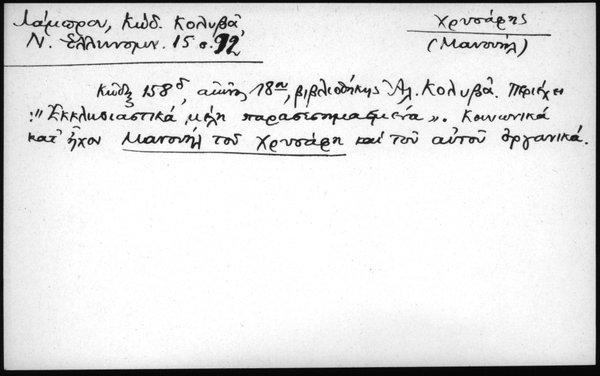 Λάμπρου, Κώδ. Κολυβᾶ
Ν. Ἑλληνομν. 15 σ. 92
Χρυσάφης
(Μανουὴλ)
Κῶδιξ 158δ, αἰῶνος 18ου, βιβλιοθήκης Ἀλ. Κολυβᾶ. Περιέχει
: "Ἐκκλησιαστικὰ μέλη παρασεσημασμένα". Κοινωνικὰ
κατ' ἦχον Μανουὴλ τοῦ Χρυσάφη καὶ τοῦ αὐτοῦ ὀργανικά.